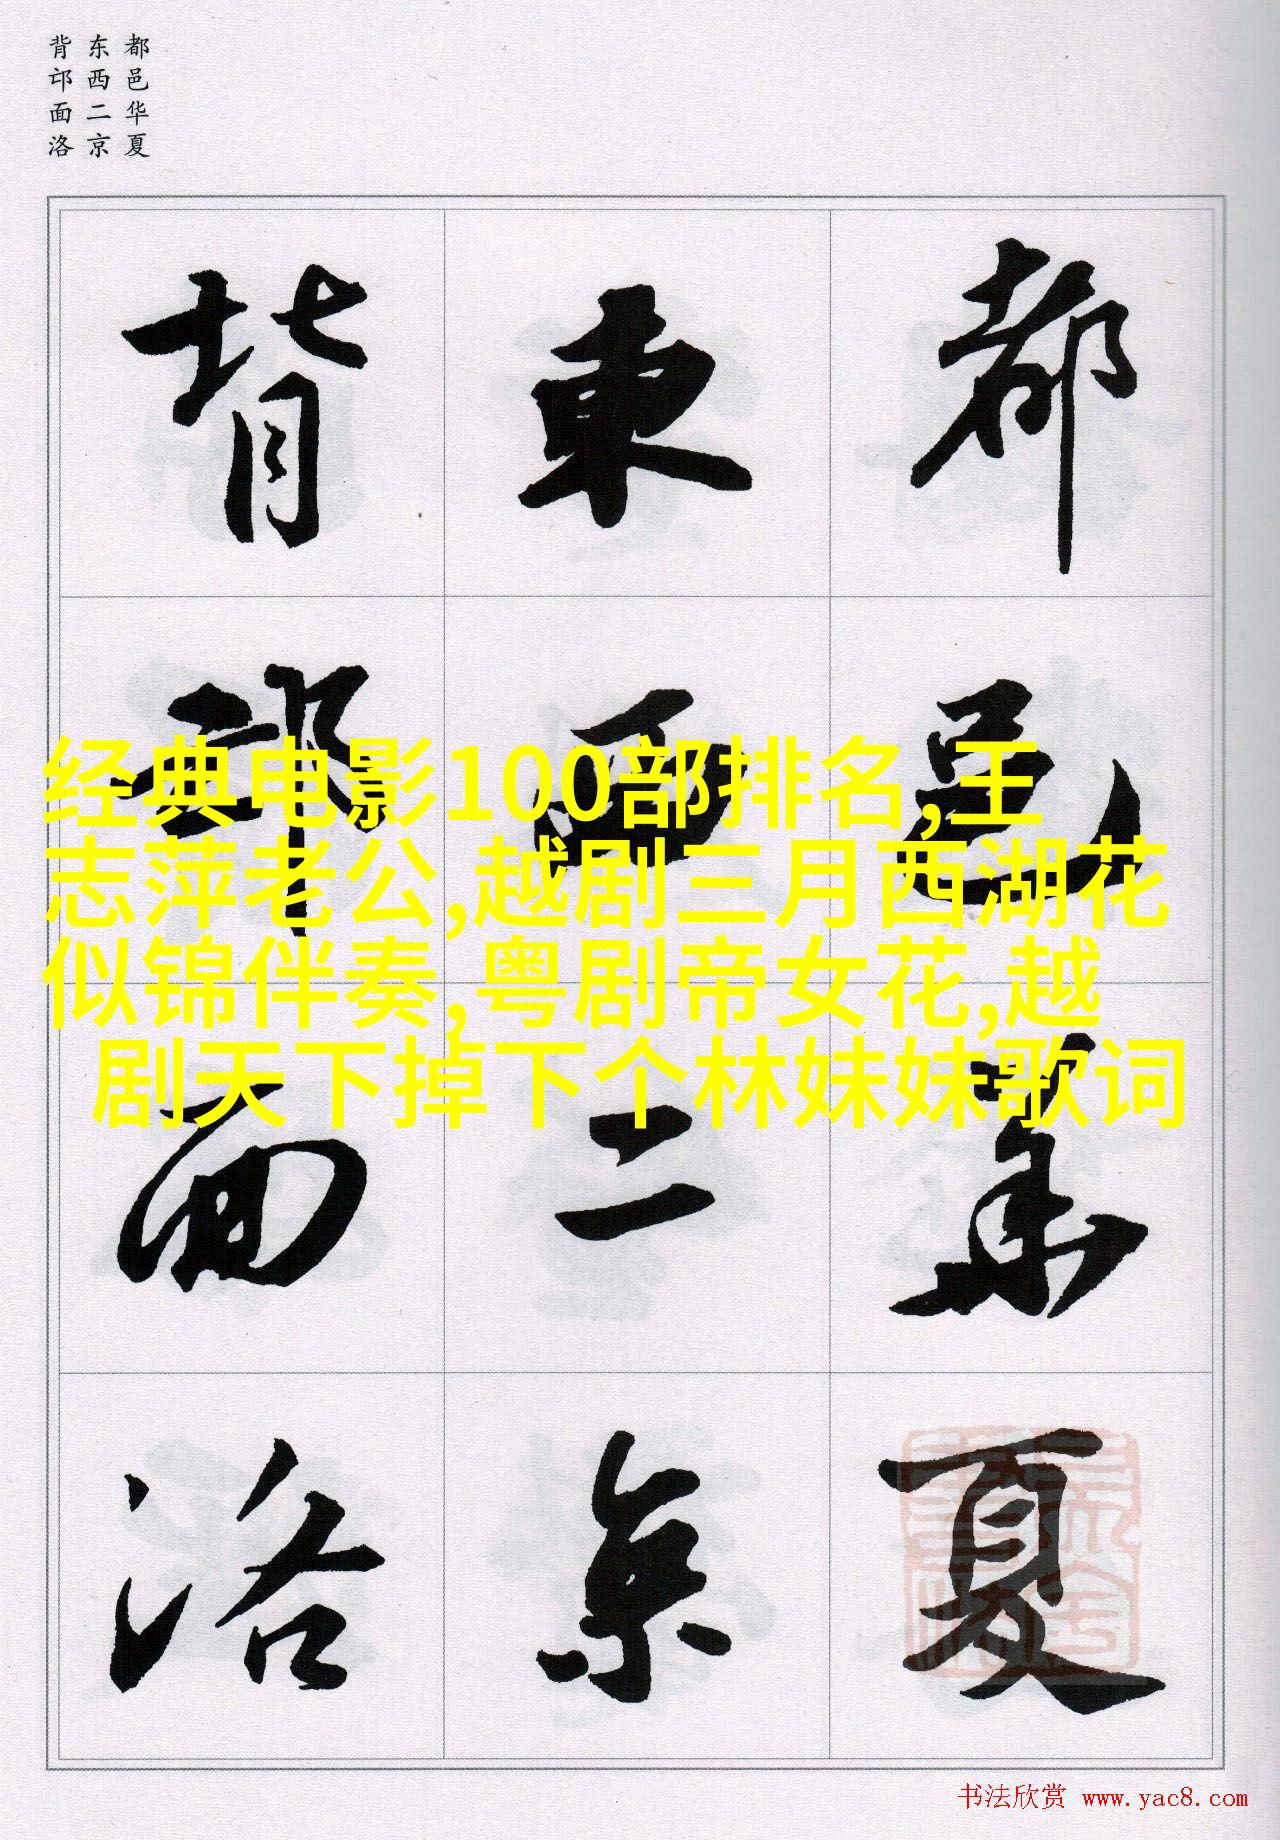 都邑华夏
东西二京
背邙面洛
都邑華夏
東西二京
背邙面洛
经典电影100部排名,王
志萍老公,越剧三月西湖花
似锦伴奏,粤剧帝女花,越
剧天下掉下个林妹妹歌词
书法欣赏 www.yac8.com